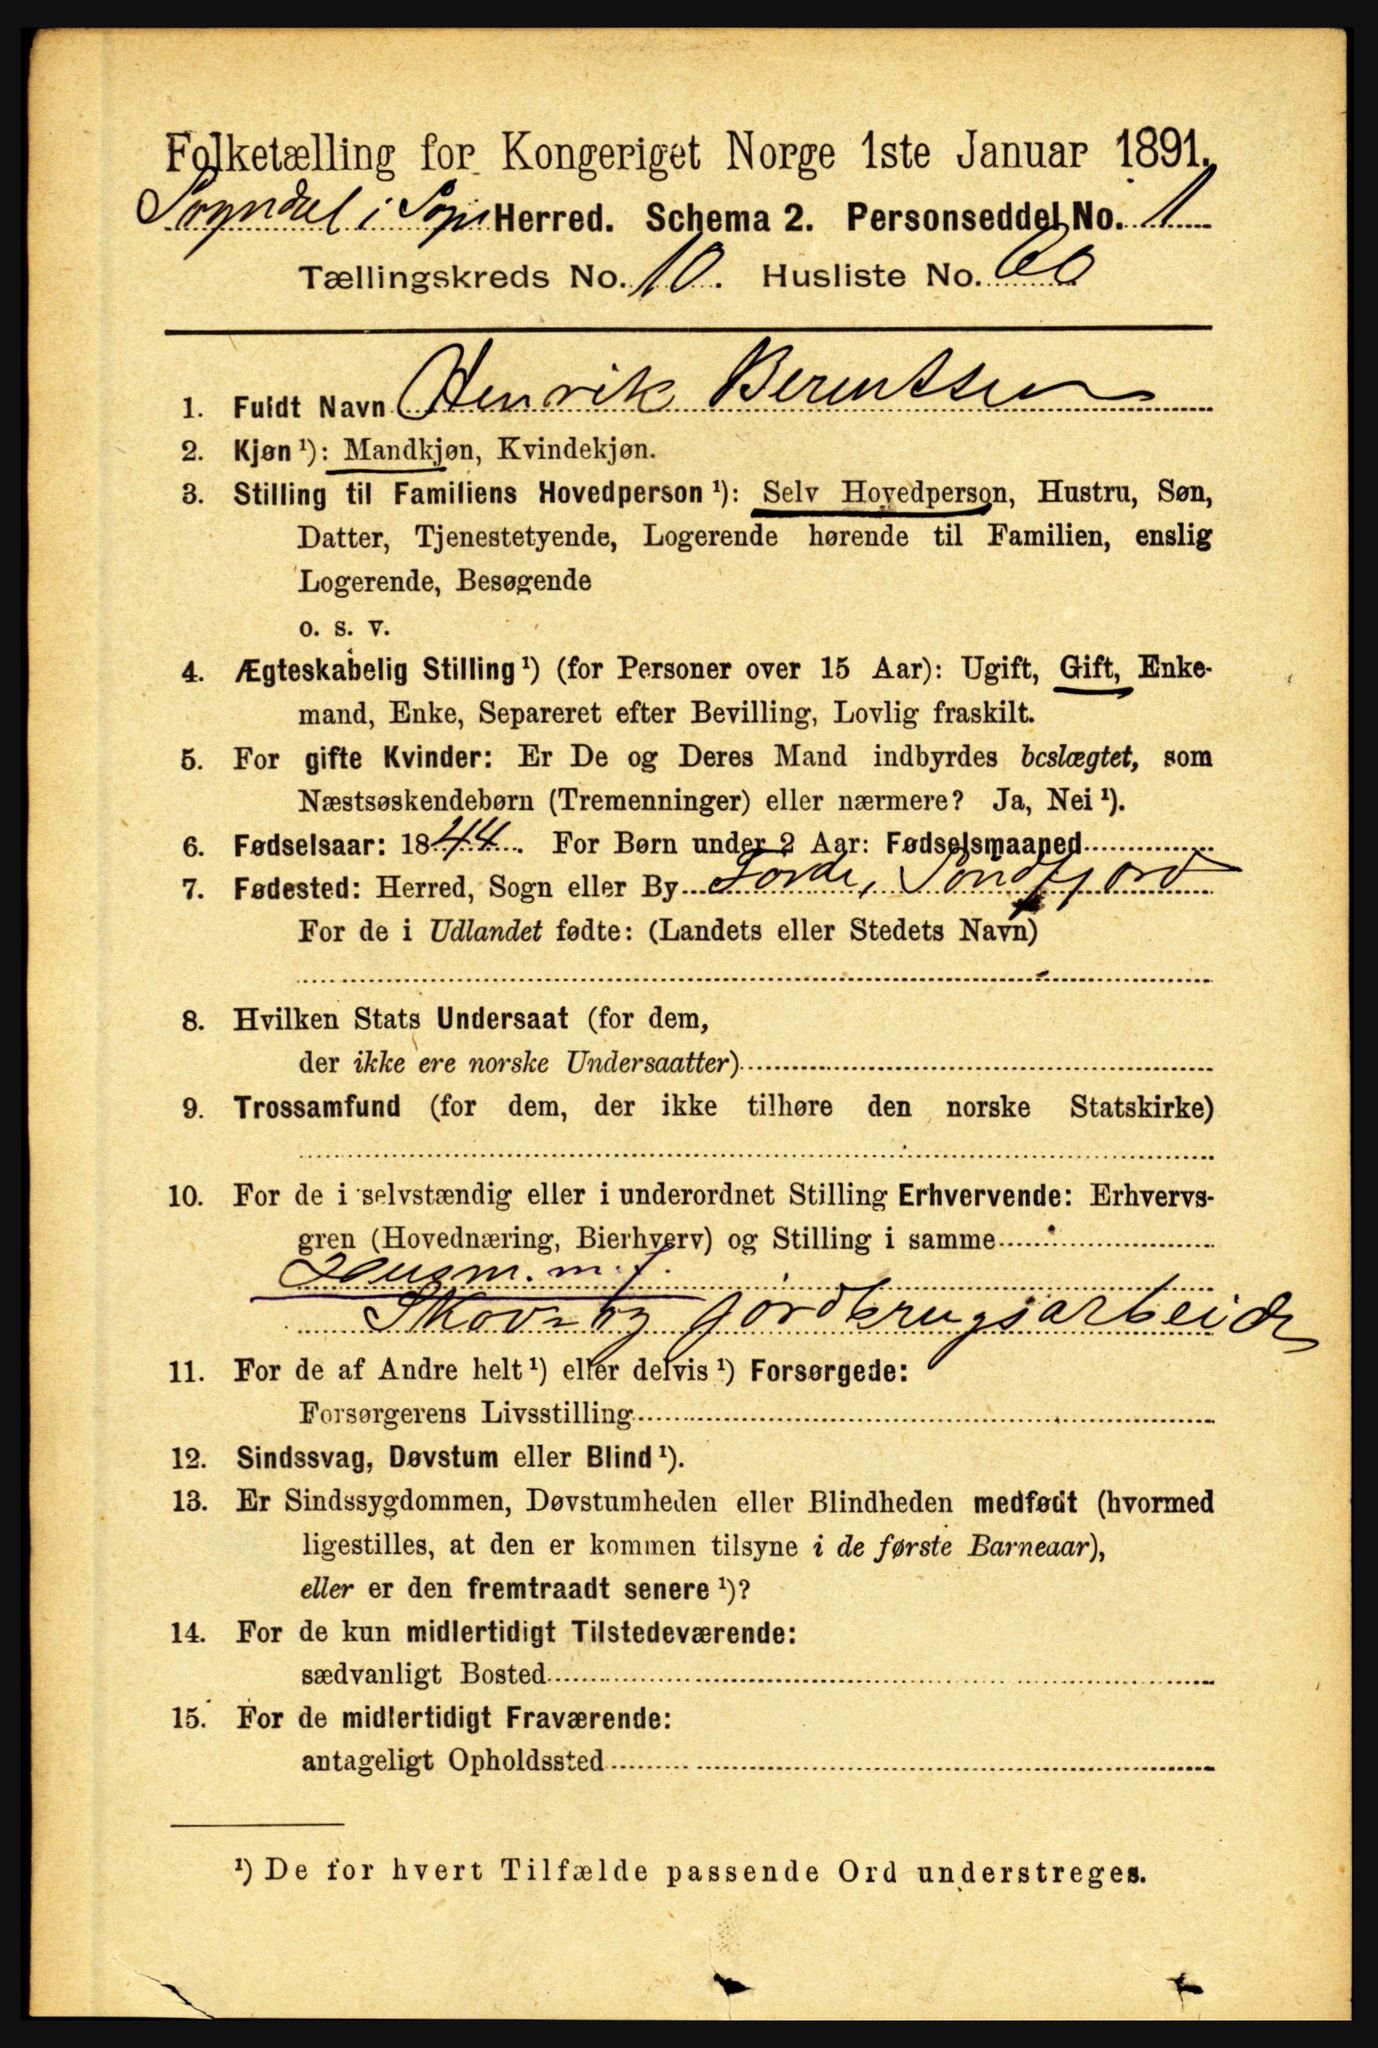 Folketælling for Kongeriget Norge 1ste Januar 1891.
Sogndal i Sogn Herred. Schema 2. Personseddel No. 1
Tællingskreds No. 10. Husliste No. 60
1. Fuldt Navn Henrik Berentsen
2. Kjøn ¹): Mandkjøn, Kvindekjøn.
3. Stilling til Familiens Hovedperson ¹): Selv Hovedperson, Hustru, Søn,
Datter, Tjenestetyende, Logerende hørende til Familien, enslig
Logerende, Besøgende
o. s. v.
4. Ægteskabelig Stilling ¹) (for Personer over 15 Aar): Ugift, Gift, Enke-
mand, Enke, Separeret efter Bevilling, Lovlig fraskilt.
5. For gifte Kvinder: Er De og Deres Mand indbyrdes beslægtet, som
Næstsøskendebørn (Tremenninger) eller nærmere? Ja, Nei ¹).
6. Fødselsaar: 1844. For Børn under 2 Aar: Fødselsmaaned
7. Fødested: Herred, Sogn eller By Førde, Søndfjord
For de i Udlandet fødte: (Landets eller Stedets Navn)
8. Hvilken Stats Undersaat (for dem,
der ikke ere norske Undersaatter)
9. Trossamfund (for dem, der ikke tilhøre den norske Statskirke)
10. For de i selvstændig eller i underordnet Stilling Erhvervende: Erhvervs-
gren (Hovednæring, Bierhverv) og Stilling i samme
Husm. m. j.
Skov og jordbrugsarbeide
11. For de af Andre helt ¹) eller delvis ¹) Forsørgede:
Forsørgerens Livsstilling
12. Sindssvag, Døvstum eller Blind ¹).
13. Er Sindssygdommen, Døvstumheden eller Blindheden medfødt (hvormed
ligestilles, at den er kommen tilsyne i de første Barneaar),
eller er den fremtraadt senere ¹)?
14. For de kun midlertidigt Tilstedeværende:
sædvanligt Bosted
15. For de midlertidigt Fraværende:
antageligt Opholdssted
¹) De for hvert Tilfælde passende Ord understreges.